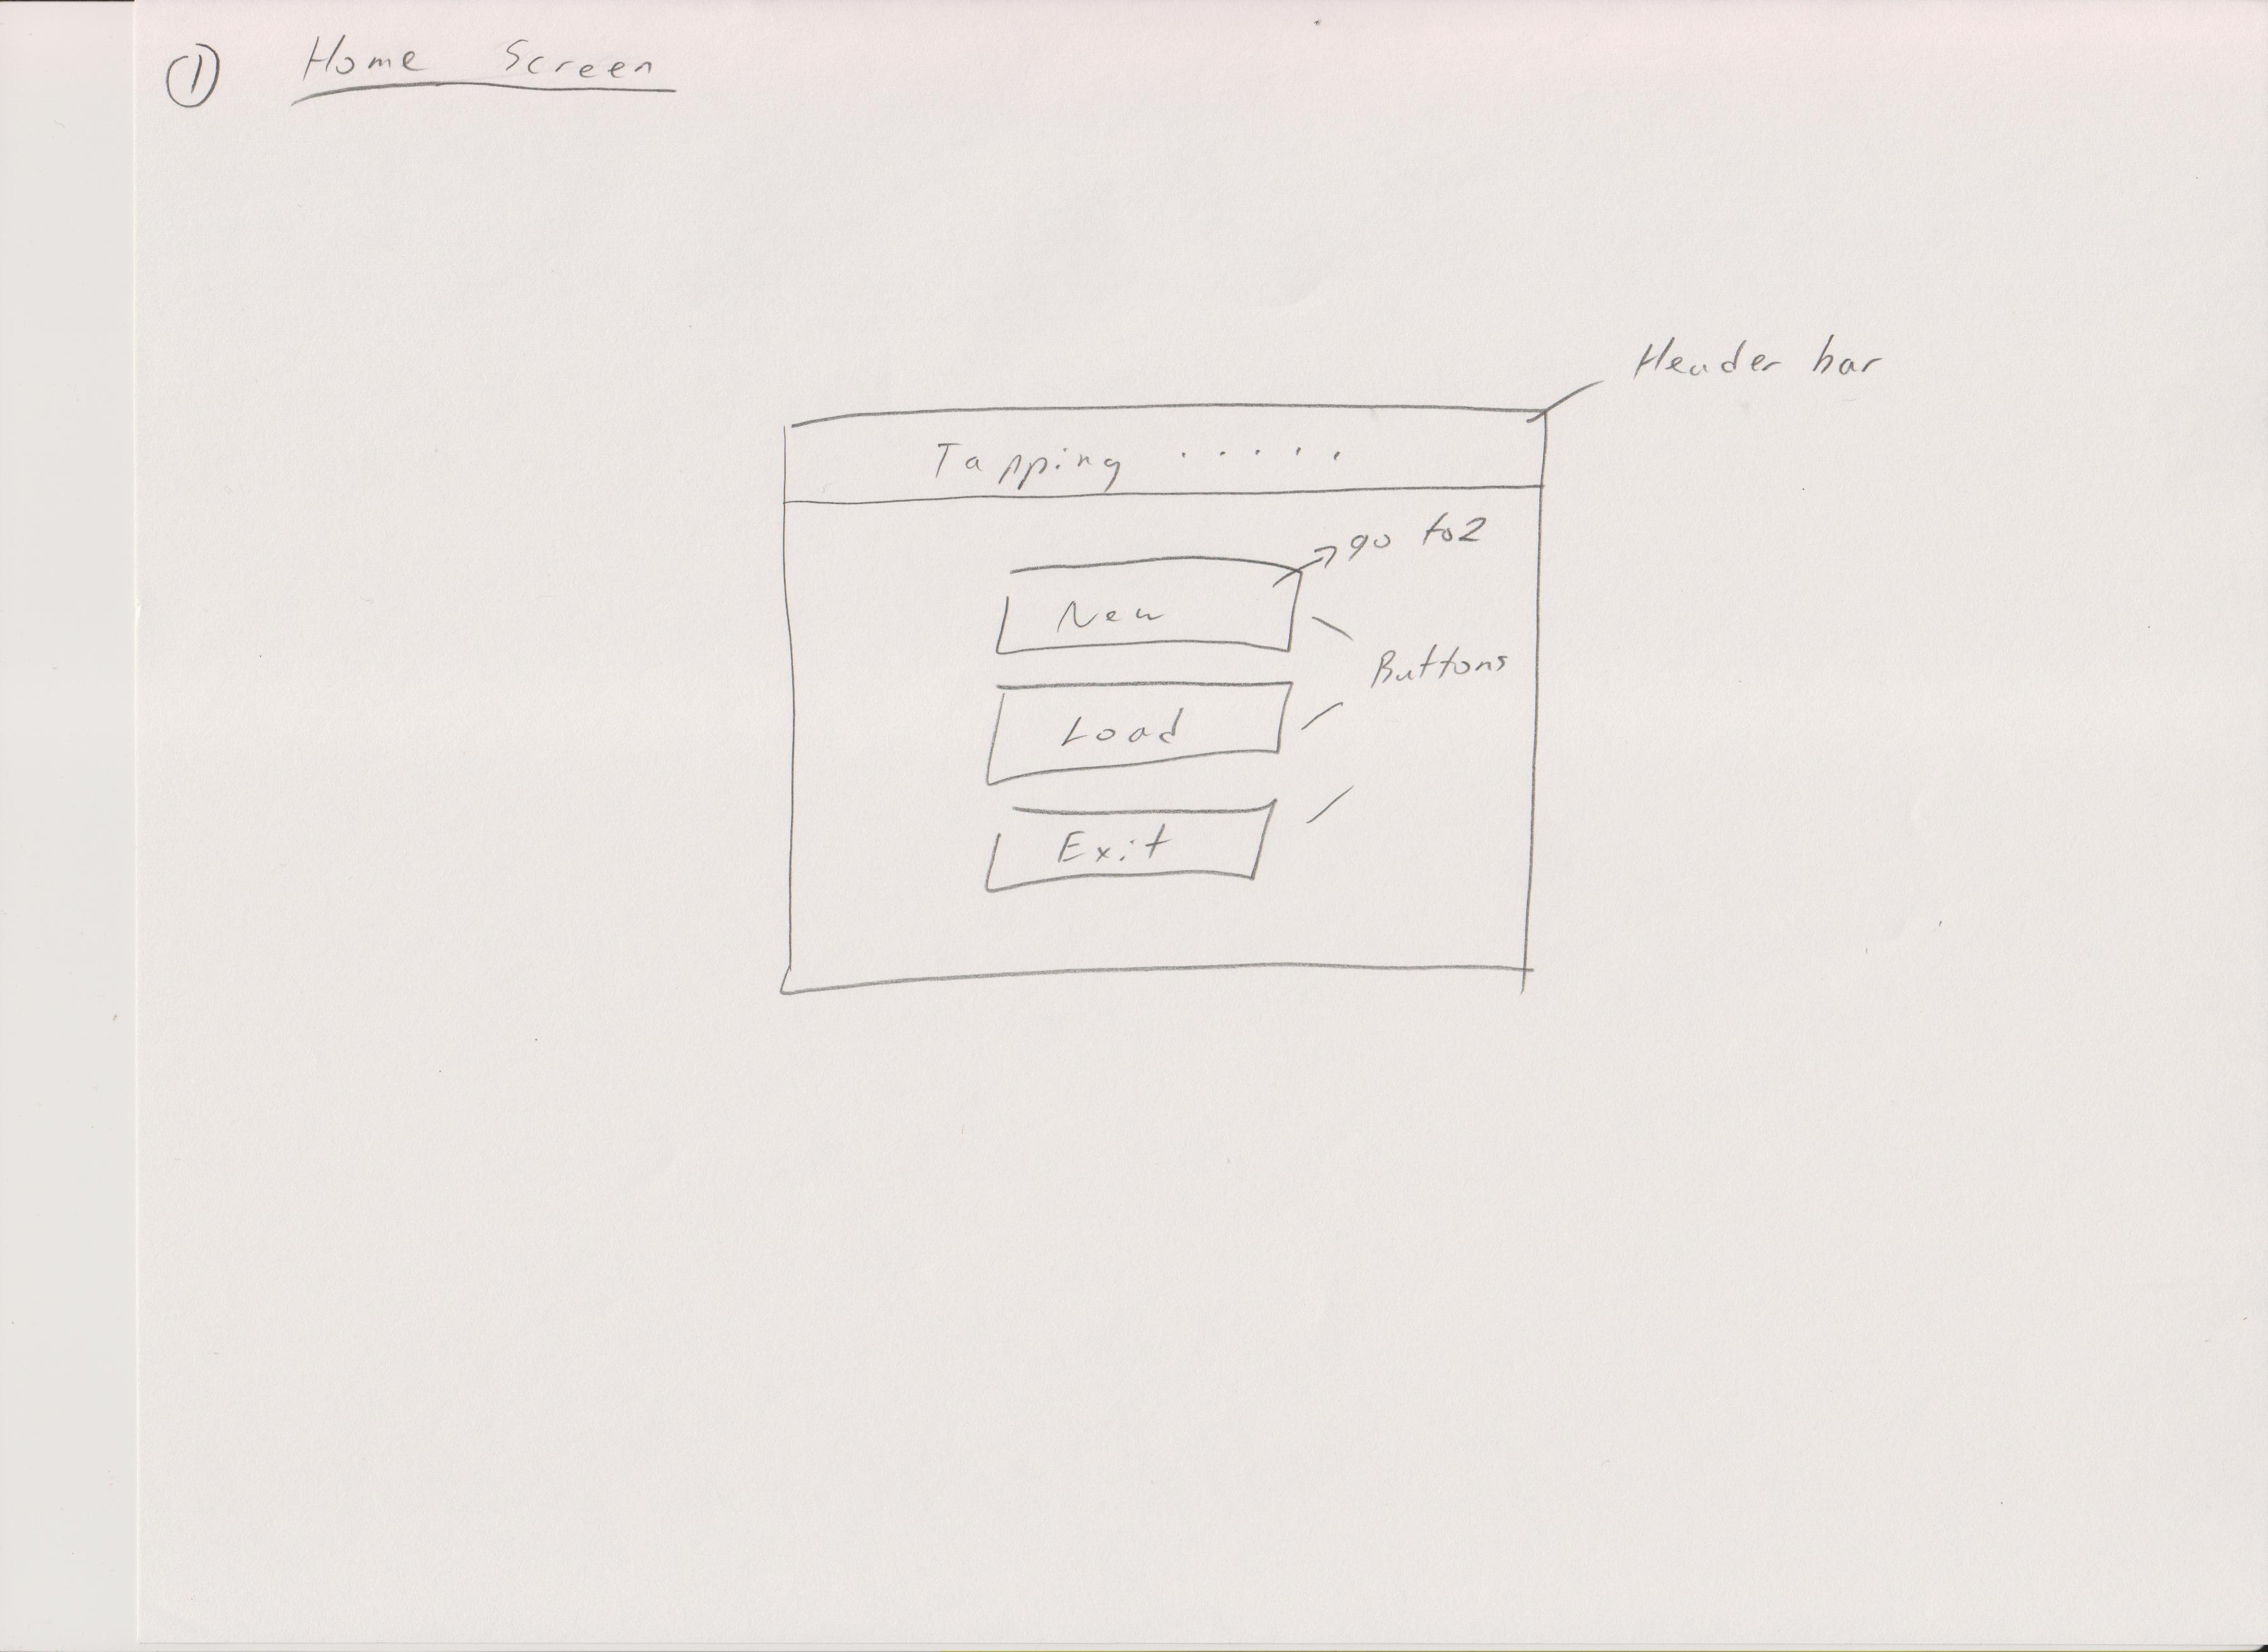 ① Home Screen
Header bar
Tapping . . . . .
go to 2
New
Buttons
Load
Exit